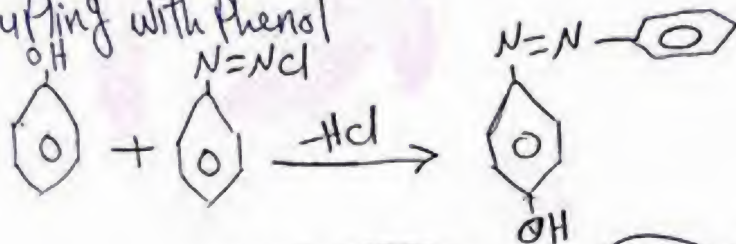 upling with Phenol
OH N=NCl N=N
+ -HCl
OH